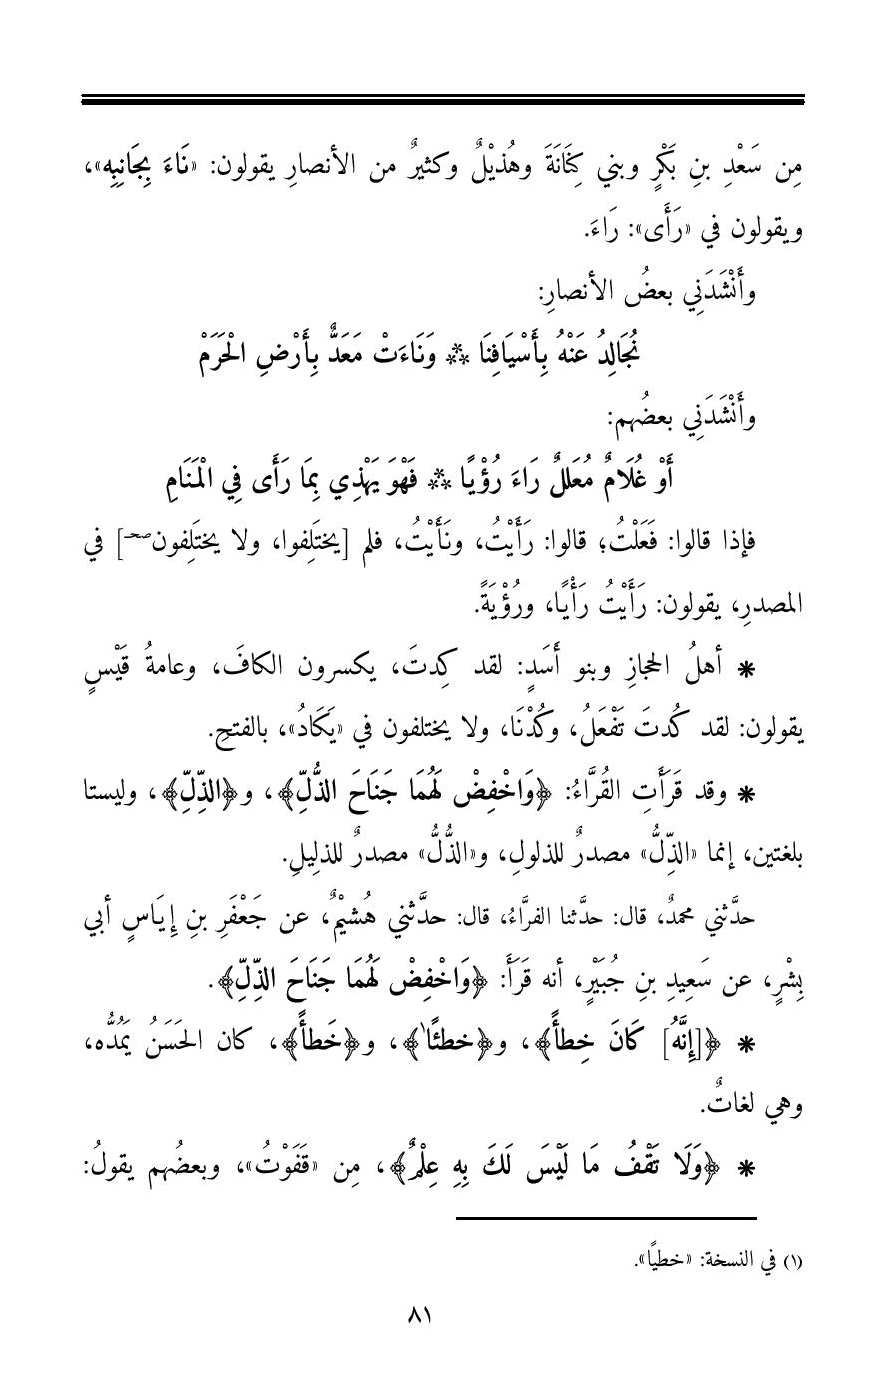 مِن سَعْدِ بنِ بَكْرٍ وبني كِنَانَةَ وهُذَيْلٌ وكثيرٌ من الأنصارِ يقولون: «نَاءَ بِجَانِبِه»،
ويقولون في «رَأَى»: رَاءَ.
وأَنْشَدَنِي بعضُ الأنصارِ:
نُجَالِدُ عَنْهُ بِأَسْيَافِنَا ** وَنَاءَتْ مَعَدٌّ بِأَرْضِ الْحَرَمْ
وأَنْشَدَنِي بعضُهم:
أَوْ غُلَامٌ مُعَللٌ رَاءَ رُؤْيًا ** فَهْوَ يَهْذِي بِمَا رَأَى فِي الْمَنَامِ
فإذا قالوا: فَعَلْتُ؛ قالوا: رَأَيْتُ، ونَأَيْتُ، فلم [يختَلِفوا، ولا يختَلِفونصحـ] في
المصدرِ، يقولون: رَأَيْتُ رَأْيًا، ورُؤْيَةً.
* أهلُ الحجازِ وبنو أَسَدٍ: لقد كِدتَ، يكسرون الكافَ، وعامةُ قَيْسٍ
يقولون: لقد كُدتَ تَفْعَلُ، وكُدْنَا، ولا يختلفون في «يَكَادُ»، بالفتحِ.
* وقد قَرَأَتِ القُرَّاءُ: ﴿وَاخْفِضْ لَهُمَا جَنَاحَ الذُّلِّ﴾، و﴿الذِّلِّ﴾، وليستا
بلغتين، إنما «الذِّلُّ» مصدرٌ للذلولِ، و«الذُّلُّ» مصدرٌ للذلِيلِ.
حدَّثني محمدٌ، قال: حدَّثنا الفرَّاءُ، قال: حدَّثني هُشيْمٌ، عن جَعْفَرِ بنِ إِيَاسٍ أبي
بِشْرٍ، عن سَعِيدِ بنِ جُبَيْرٍ، أنه قَرَأَ: ﴿وَاخْفِضْ لَهُمَا جَنَاحَ الذِّلِّ﴾.
* ﴿[إِنَّهُ] كَانَ خِطأً﴾، و﴿خطئًا١﴾، و﴿خَطأً﴾، كان الحَسَنُ يَمُدُّه،
وهي لغاتٌ.
* ﴿وَلَا تَقْفُ مَا لَيْسَ لَكَ بِهِ عِلْمٌ﴾، مِن «قَفَوْتُ»، وبعضُهم يقولُ:
(١) في النسخة: «خطيًا».
٨١